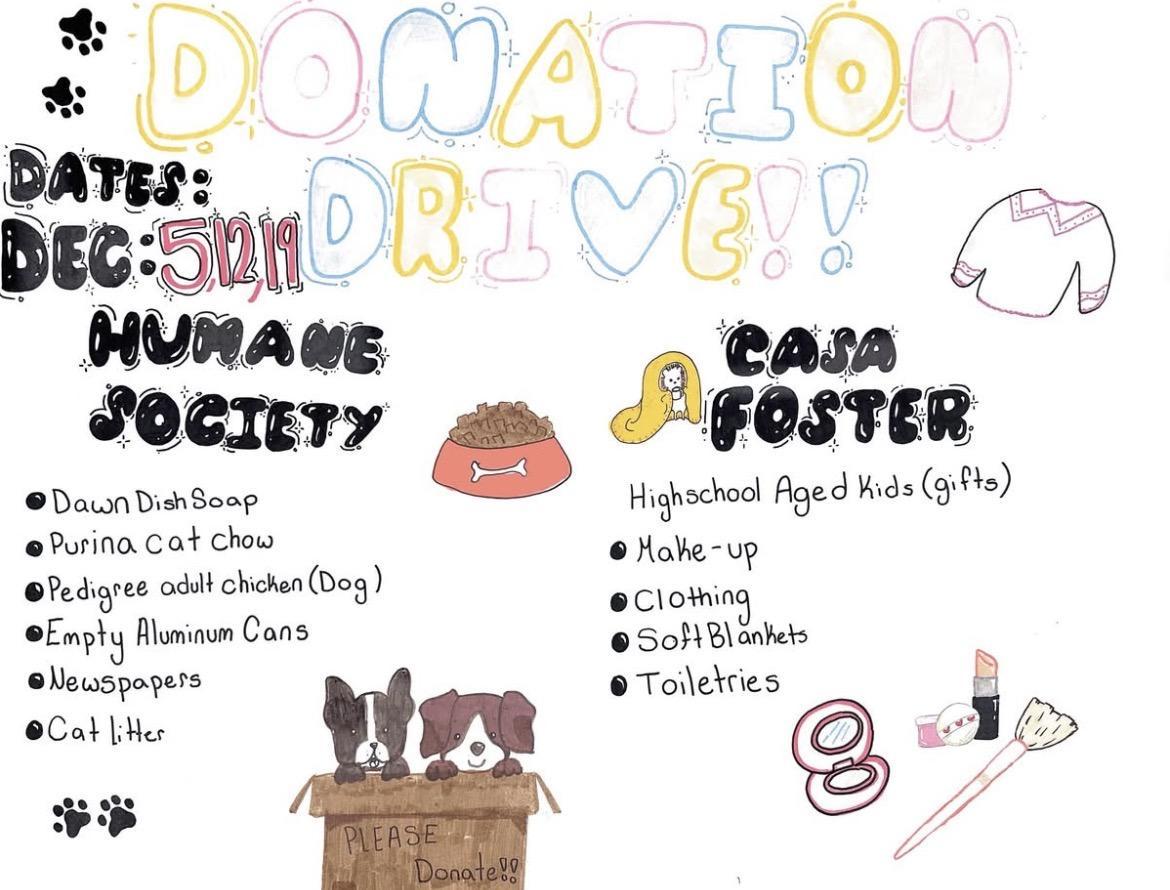 DONATION
DRIVE!!
DATES:
DEC: 5, 12, 19
HUMANE
SOCIETY
Dawn Dish Soap
Purina cat chow
Pedigree adult chicken (Dog)
Empty Aluminum Cans
Newspapers
Cat litter
PLEASE
Donate!!
CASA
FOSTER
Highschool Aged Kids (gifts)
Make-up
Clothing
Soft Blankets
Toiletries